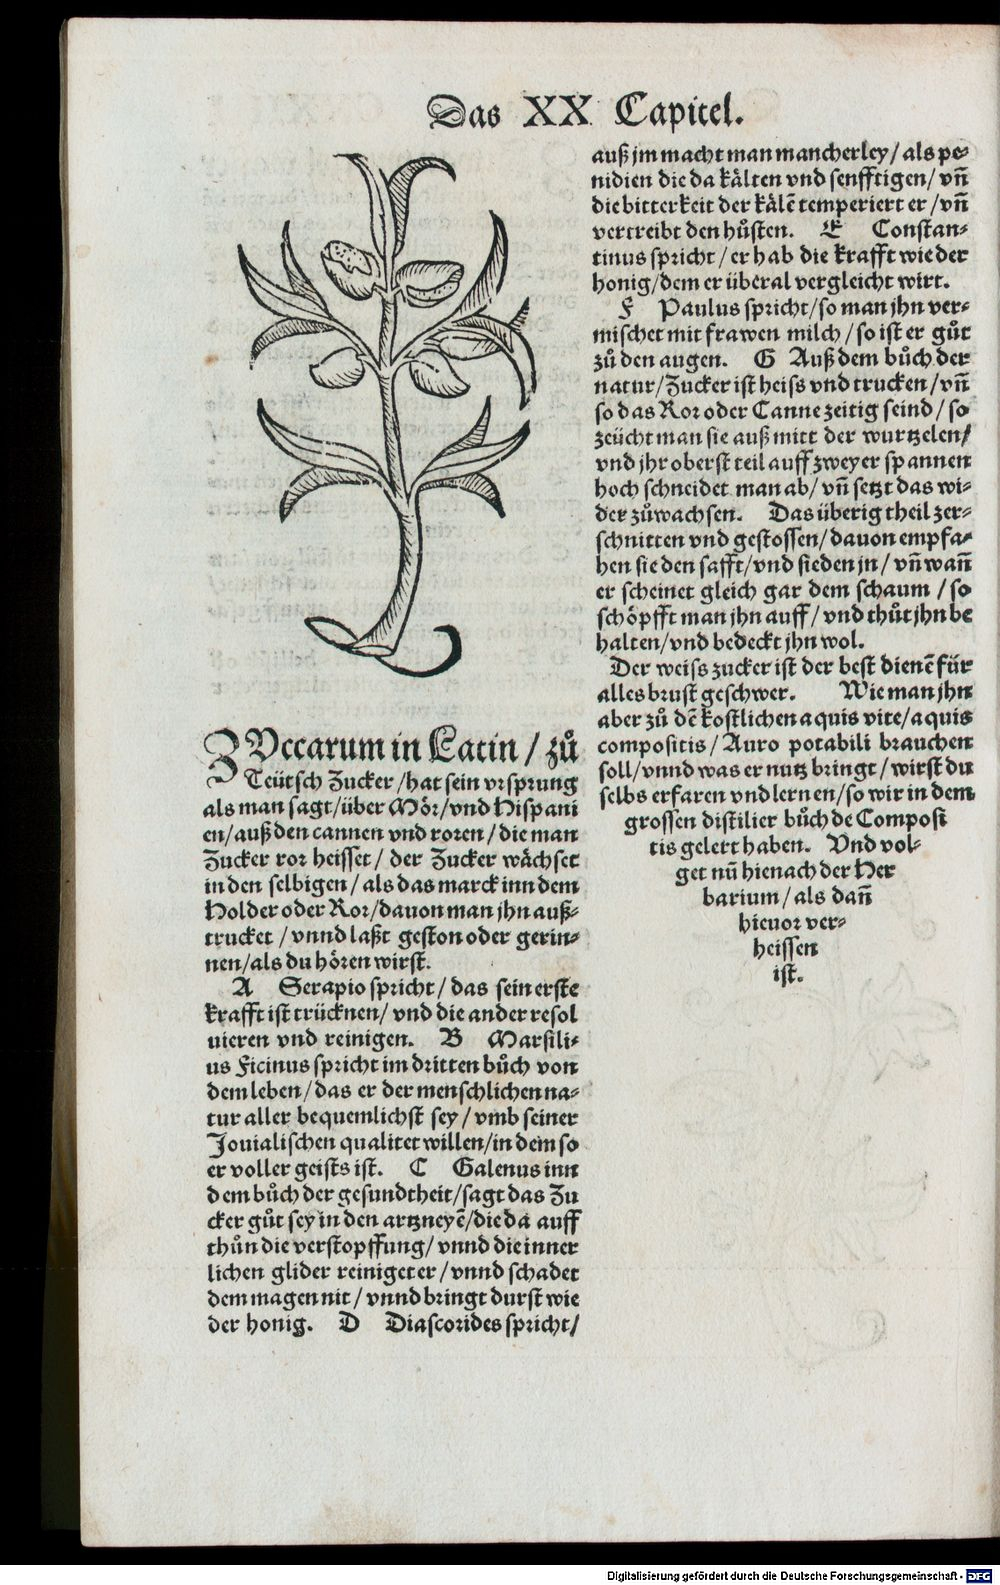 Das XX Capitel.
ZVccarum in Latin / zů
Teütsch Zucker / hat sein vrsprung
als man sagt / über Mör / vnd Hispani
en / auß den cannen vnd roren / die man
Zucker ror heisset / der Zucker wächset
in den selbigen / als das marck inn dem
Holder oder Ror / dauon man jhn auß⸗
trucket / vnnd laßt geston oder gerin⸗
nen / als du hören wirst.
A Serapio spricht / das sein erste
krafft ist trücknen / vnd die ander resol
uieren vnd reinigen. B Marsili⸗
us Ficinus spricht im dritten bůch von
dem leben / das er der menschlichen na⸗
tur aller bequemlichst sey / vmb seiner
Jouialischen qualitet willen / in dem so
er voller geists ist. C Galenus inn
dem bůch der gesundtheit / sagt das Zu
cker gůt sey in den artzneyē / die da auff
thůn die verstopffung / vnnd die inner
lichen glider reiniget er / vnnd schadet
dem magen nit / vnnd bringt durst wie
der honig. D Diascorides spricht /
auß jm macht man mancherley / als pe⸗
nidien die da kälten vnd senfftigen / vñ
die bitterkeit der kälē temperiert er / vñ
vertreibt den hůsten. E Constan⸗
tinus spricht / er hab die krafft wie der
honig / dem er überal vergleicht wirt.
F Paulus spricht / so man jhn ver⸗
mischet mit frawen milch / so ist er gůt
zů den augen. G Auß dem bůch der
natur / Zucker ist heiss vnd trucken / vñ
so das Ror oder Canne zeitig seind / so
zeücht man sie auß mitt der wurtzelen /
vnd jhr oberst teil auff zweyer spannen
hoch schneidet man ab / vñ setzt das wi⸗
der zůwachsen. Das überig theil zer⸗
schnitten vnd gestossen / dauon empfa⸗
hen sie den safft / vnd sieden jn / vñ wañ
er scheinet gleich gar dem schaum / so
schöpfft man jhn auff / vnd thůt jhn be
halten / vnd bedeckt jhn wol.
Der weiss zucker ist der best dienē für
alles brust geschwer. Wie man jhn
aber zů dē kostlichen aquis vite / aquis
compositis / Auro potabili brauchen
soll / vnnd was er nutz bringt / wirst du
selbs erfaren vnd lernen / so wir in dem
grossen distilier bůch de Composi
tis gelert haben. Vnd vol⸗
get nū hienach der Her
barium / als dañ
hieuor ver⸗
heissen
ist.
Digitalisierung gefördert durch die Deutsche Forschungsgemeinschaft - DFG